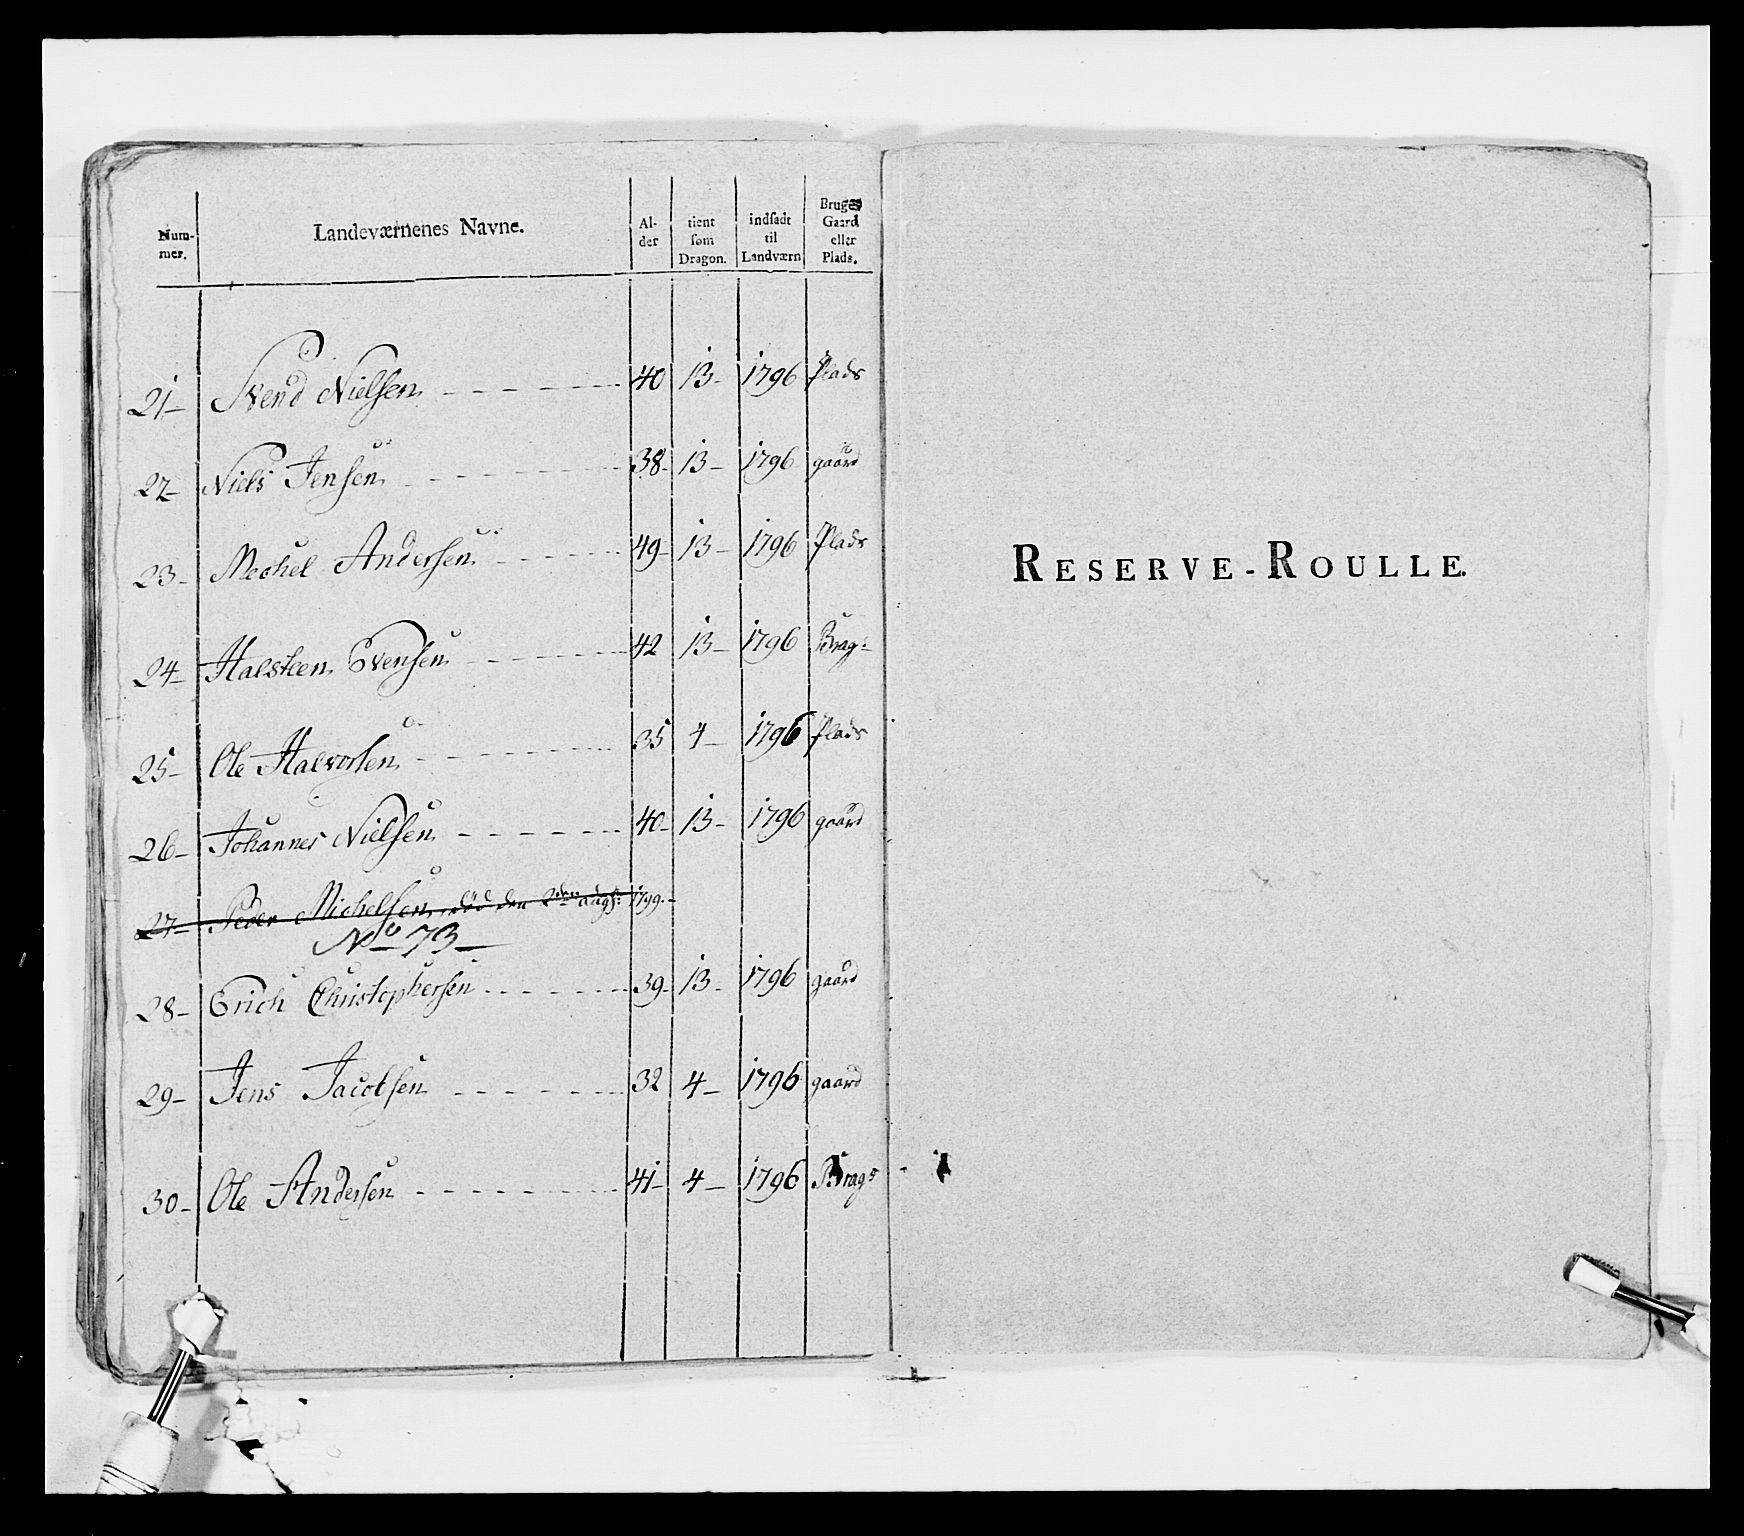 Num-
mer.
Landeværnenes Navne.
Al-
der
tient
som
Dragon.
indsadt
til
Landværn
Bruger
Gaard
eller
Plads.
21- Svend Nielsen 40 13- 1796 Plads
22- Niels Jensen 38- 13- 1796 gaard
23- Mechel Andersen 49- 13- 1796 Plads
24- Halsteen Evensen 42 13- 1796 Brag:
25- Ole Halvorsen 35 4- 1796 Plads
26- Johannes Nielsen 40- 13- 1796 gaard
27- Peder Michelsen død den 2den augs: 1799.-
No 73
28- Erich Christophersen 39- 13- 1796 gaard
29- Jens Jacobsen 32 4- 1796 gaard
30- Ole Andersen 41- 4- 1796 Brags
RESERVE-ROULLE.